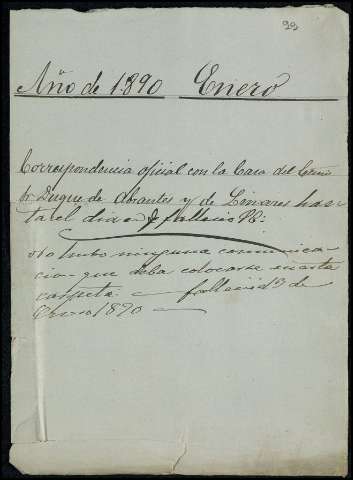 99
Año de 1890 Enero
Correspondencia oficial con la Casa del Exmo
Sr Duque de Abrantes y de Linares has-
ta el dia en q. fallecio
No hubo ninguna comunica-
cion que deba colocarse en esta
carpeta. fallecio el 3 de
Enero 1890